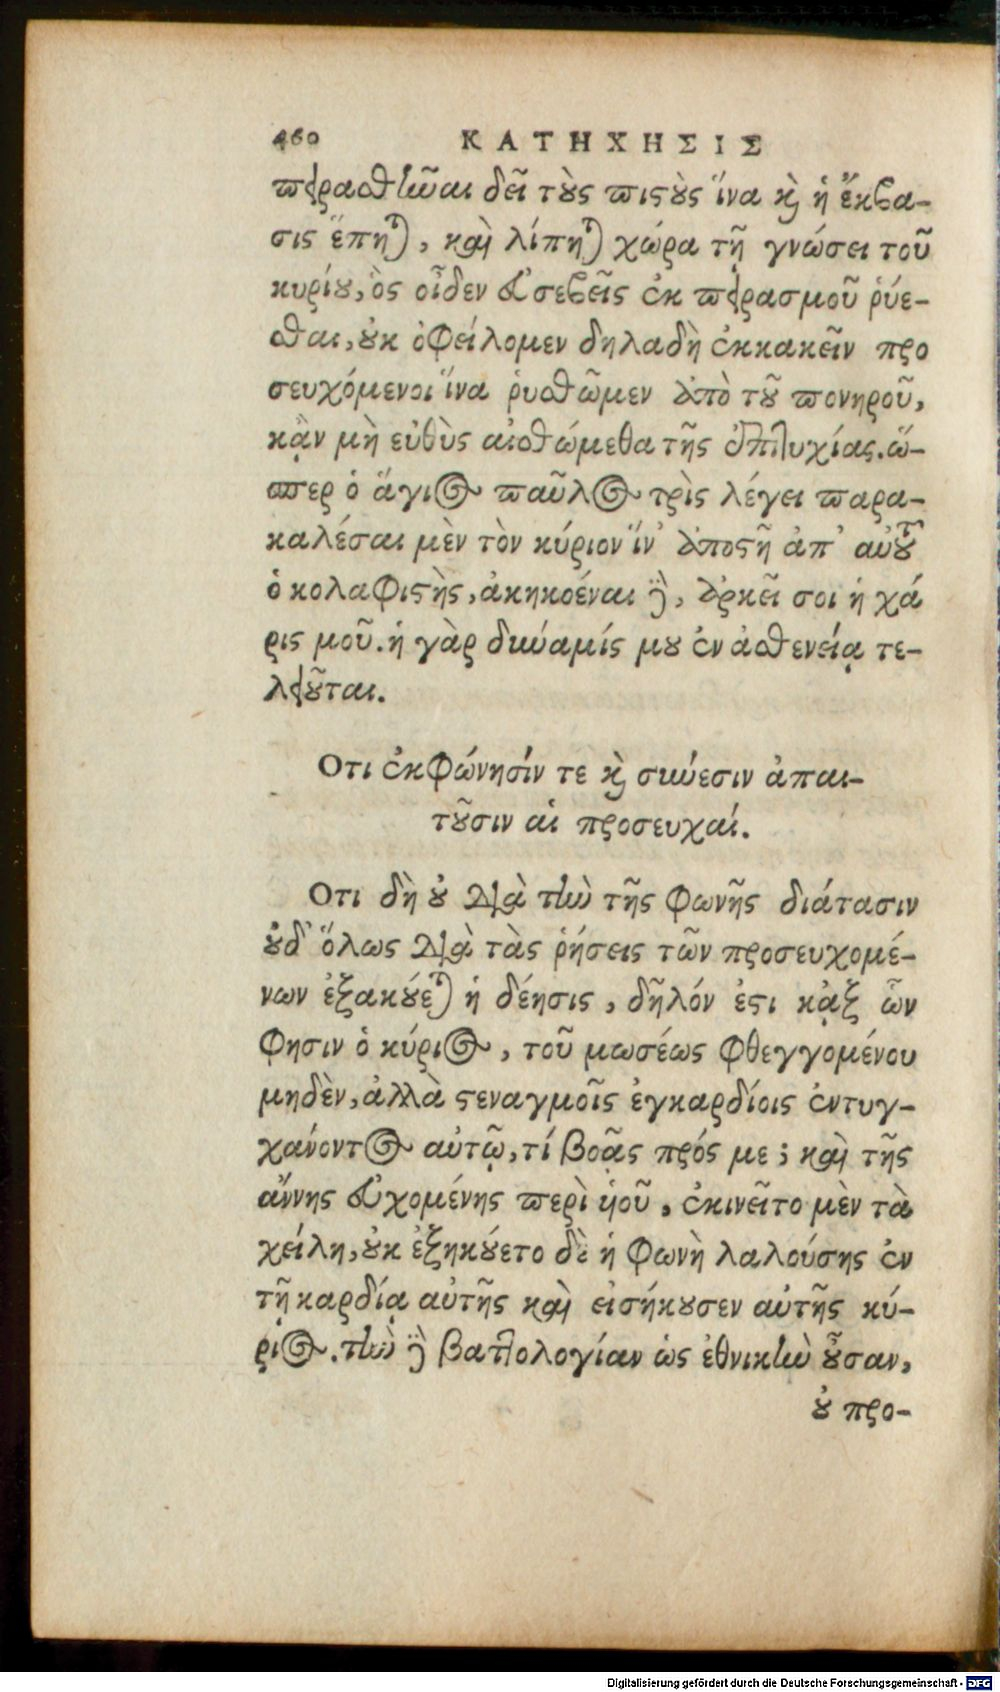 460 ΚΑΤΗΧΗΣΙΣ
πειρασθῆναι δεῖ τοὺς πιστοὺς ἵνα καὶ ἡ ἔκβα-
σις ἕπηται, καὶ λίπηται χώρα τῇ γνώσει τοῦ
κυρίου, ὃς οἶδεν εὐσεβεῖς ἐκ πειρασμοῦ ῥύε-
σθαι, οὐκ ὀφείλομεν δηλαδὴ ἐκκακεῖν προ
σευχόμενοι ἵνα ῥυσθῶμεν ἀπὸ τοῦ πονηροῦ,
κᾂν μὴ εὐθὺς αἰσθώμεθα τῆς ἐπιτυχίας. ὥ-
σπερ ὁ ἅγιος παῦλος τρὶς λέγει παρα-
καλέσαι μὲν τὸν κύριον ἵν' ἀποστῇ ἀπ' αὐτοῦ
ὁ κολαφιστὴς, ἀκηκοέναι δὲ, ἀρκεῖ σοι ἡ χά
ρις μοῦ. ἡ γὰρ δύναμίς μου ἐν ἀσθενείᾳ τε-
λειοῦται.
Οτι ἐκφώνησίν τε καὶ σύνεσιν ἀπαι-
τοῦσιν αἱ προσευχαί.
Οτι δὴ οὐ διὰ τὴν τῆς φωνῆς διάτασιν
οὐδ' ὅλως διὰ τὰς ῥήσεις τῶν προσευχομέ-
νων ἐξακούεται ἡ δέησις, δῆλόν ἐστι κᾀξ ὧν
φησιν ὁ κύριος, τοῦ μωσέως φθεγγομένου
μηδὲν, ἀλλὰ στεναγμοῖς ἐγκαρδίοις ἐντυγ-
χάνοντος αὐτῷ, τί βοᾷς πρός με; καὶ τῆς
ἄννης εὐχομένης περὶ ὑιοῦ, ἐκινεῖτο μὲν τὰ
χείλη, οὐκ ἐξηκούετο δὲ ἡ φωνὴ λαλούσης ἐν
τῇ καρδίᾳ αὐτῆς καὶ εἰσήκουσεν αὐτῆς κύ-
ριος. τὴν δὲ βαττολογίαν ὡς ἐθνικὴν οὖσαν,
οὐ προ-
Digitalisierung gefördert durch die Deutsche Forschungsgemeinschaft - DFG